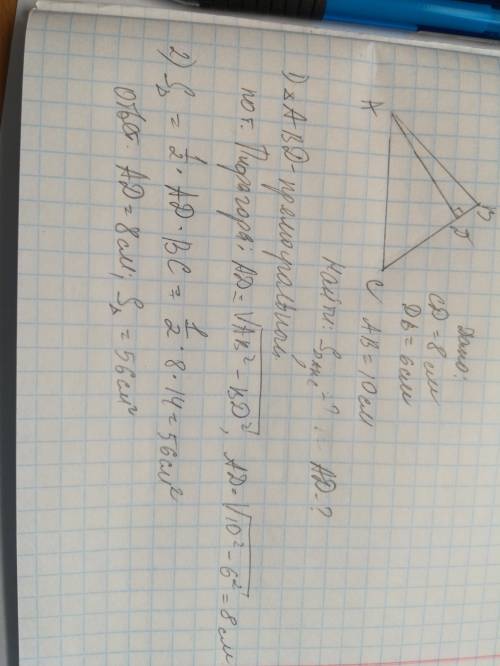 A
B
D
C
Дано:
CD = 8 см
DB = 6 см
AB = 10 см
Найти: S_ABC - ? AD - ?
1) △ABD - прямоугольный,
по т. Пифагора: AD = √AB² - BD², AD = √10² - 6² = 8 см
2) S△ = 1/2 · AD · BC = 1/2 · 8 · 14 = 56 см²
Ответ. AD = 8 см; S△ = 56 см²